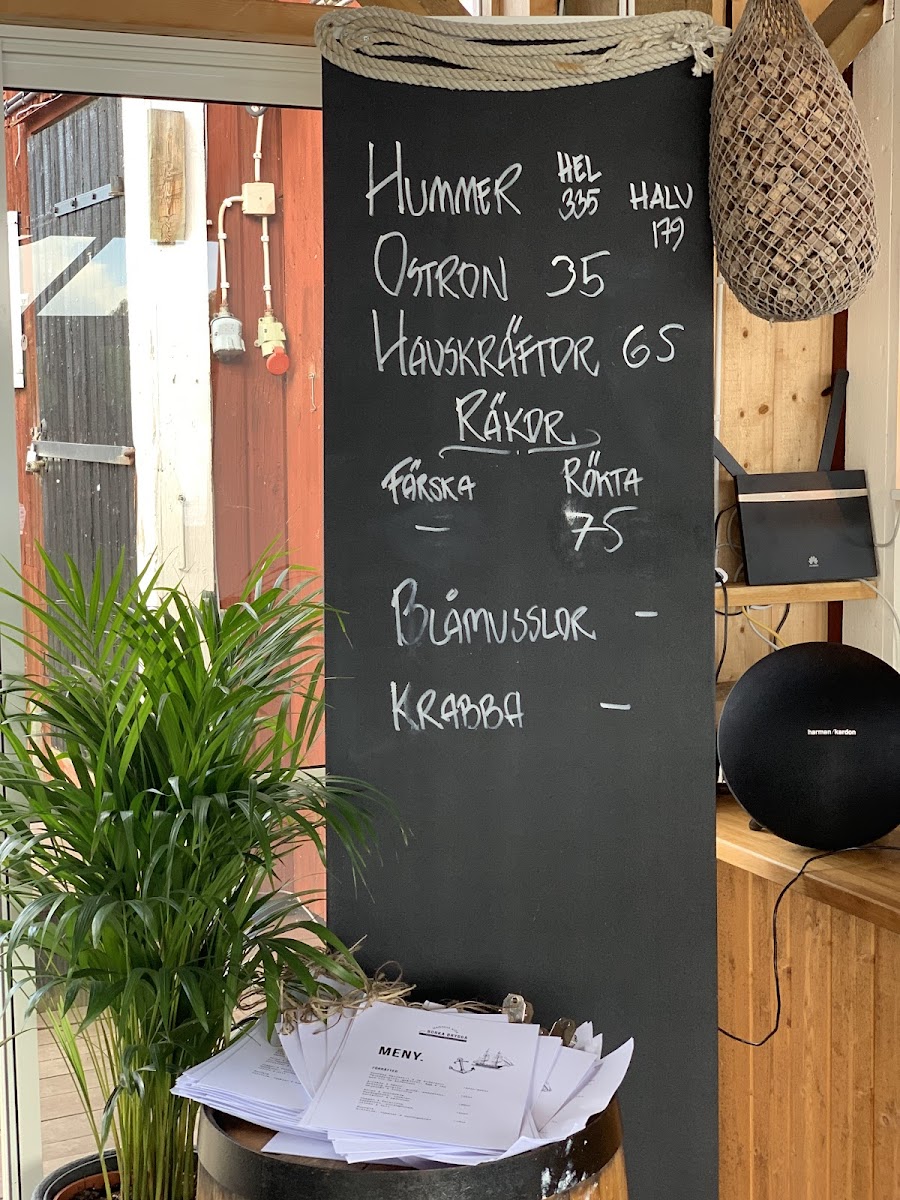 HUMMER HEL 335 HALV 179
OSTRON 35
HAVSKRÄFTOR 65
RÄKOR
FÄRSKA RÖKTA
– 75
BLÅMUSSLOR –
KRABBA –
HUAWEI
harman/kardon
DORKA BRYGGA
MENY.
FÖRRÄTTER